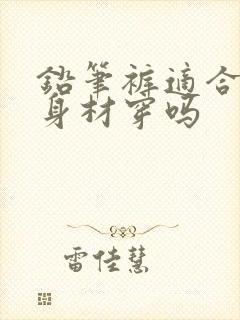 鉛筆裤適合
身材穿吗
雷佳慧